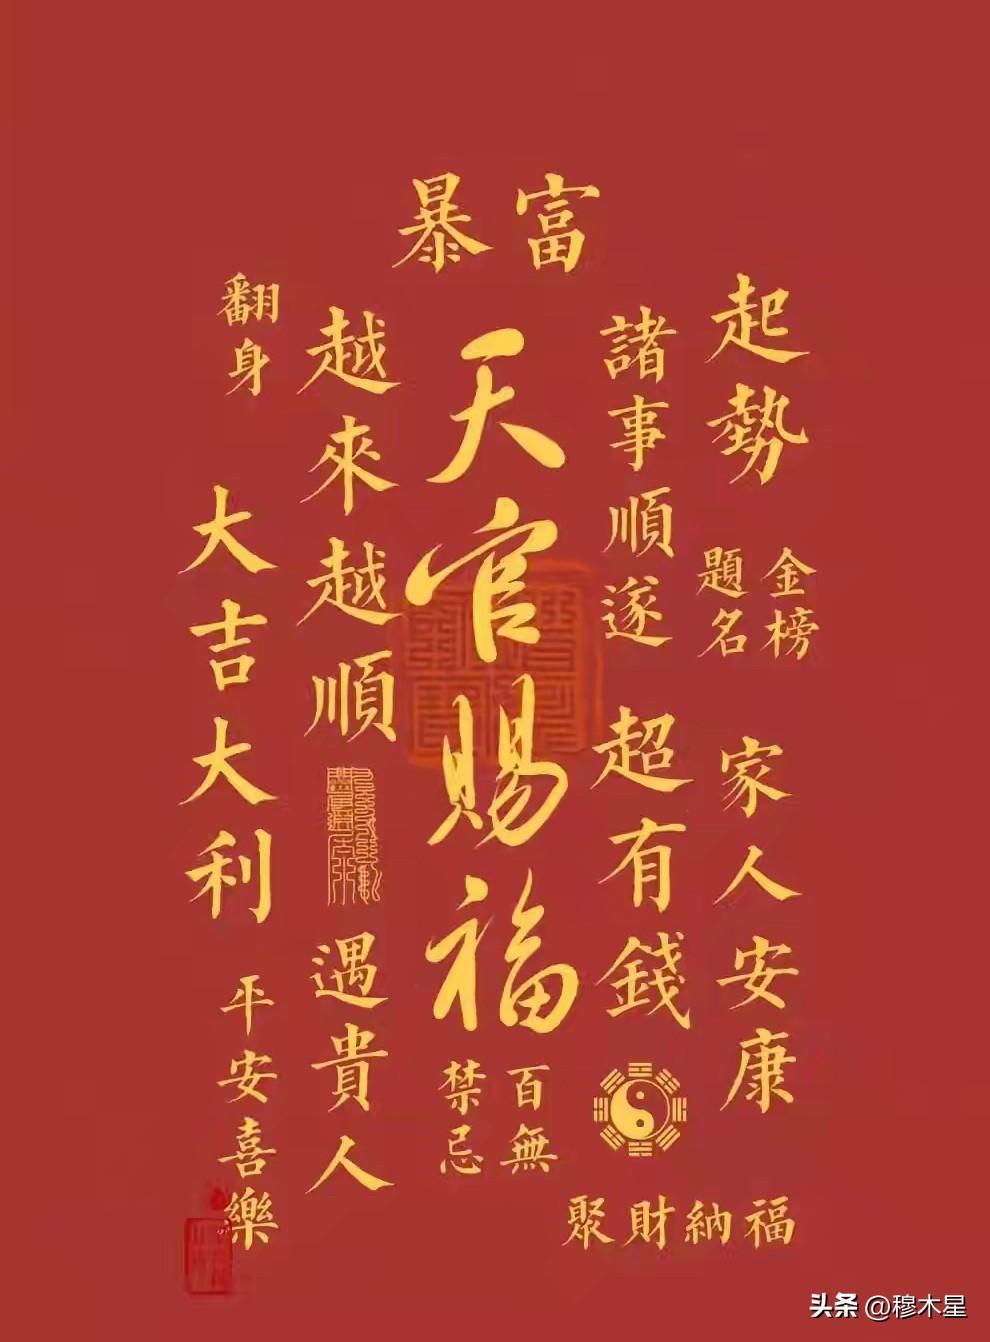 暴富
起勢
金榜
題名
家人安康
諸事順遂
超有錢
天官賜福
百無
禁忌
越來越順
遇貴人
翻身
大吉大利
平安喜樂
聚財納福
头条 @穆木星